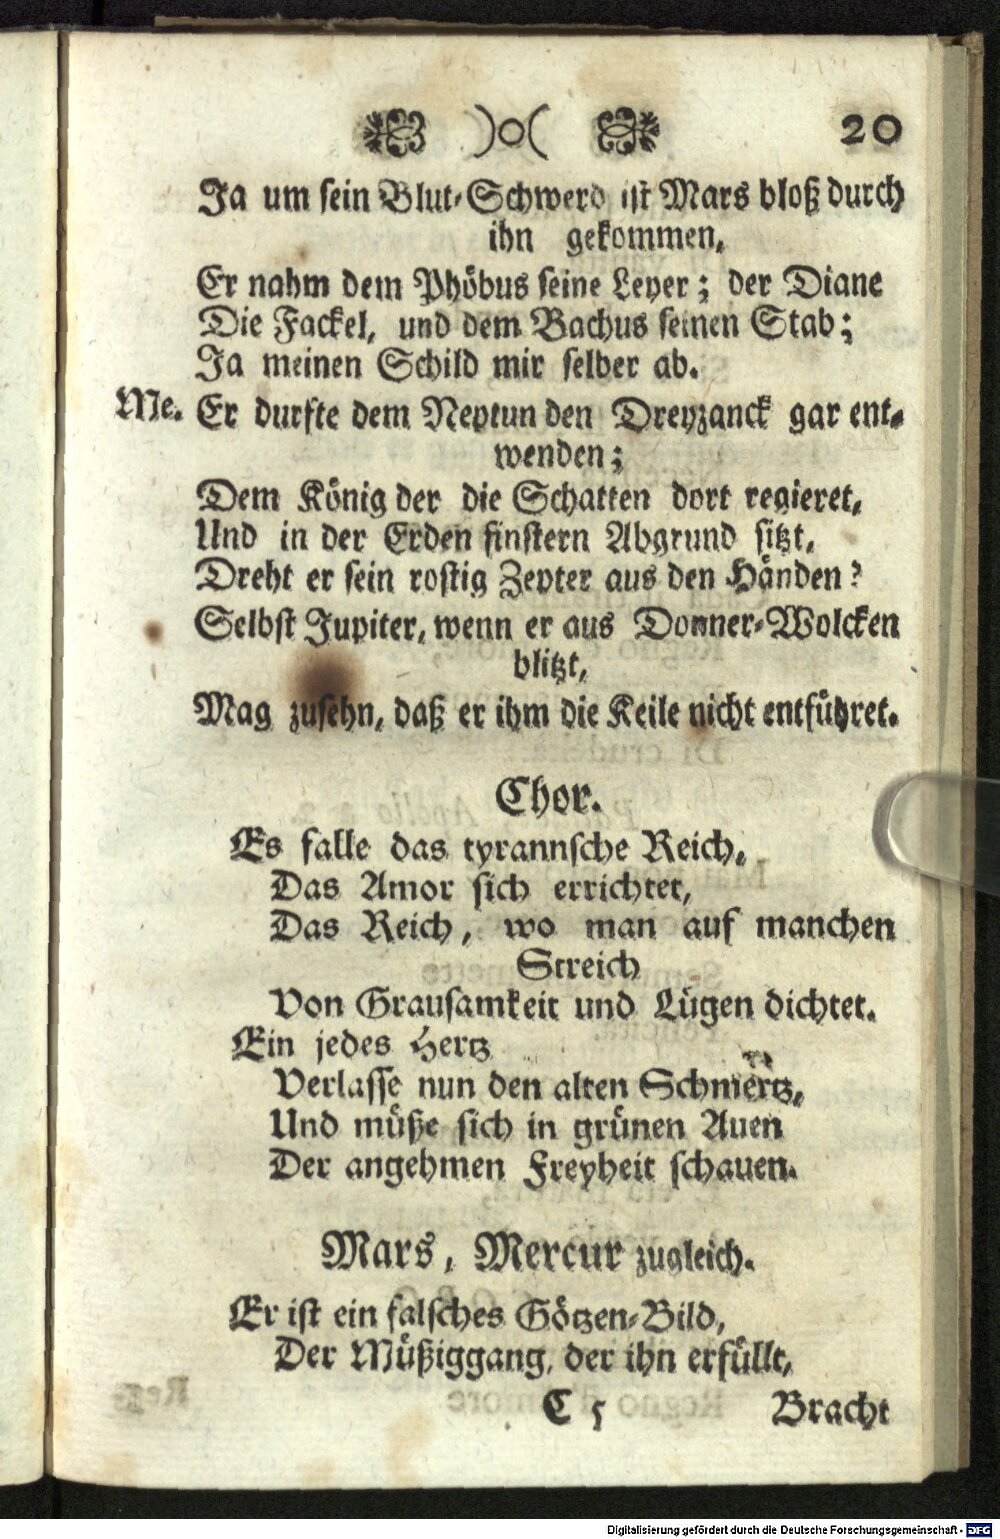 )o( 20
Ja um sein Blut-Schwerd ist Mars bloß durch
ihn gekommen,
Er nahm dem Phöbus seine Leyer; der Diane
Die Fackel, und dem Bachus seinen Stab;
Ja meinen Schild mir selber ab.
Me. Er durfte dem Neptun den Dreyzanck gar ent-
wenden;
Dem König der die Schatten dort regieret,
Und in der Erden finstern Abgrund sitzt,
Dreht er sein rostig Zepter aus den Händen?
Selbst Jupiter, wenn er aus Donner-Wolcken
blitzt,
Mag zusehn, daß er ihm die Keile nicht entführet.
Chor.
Es falle das tyrannsche Reich,
Das Amor sich errichtet,
Das Reich, wo man auf manchen
Streich
Von Grausamkeit und Lügen dichtet.
Ein jedes Hertz
Verlasse nun den alten Schmertz,
Und müße sich in grünen Auen
Der angehmen Freyheit schauen.
Mars, Mercur zugleich.
Er ist ein falsches Götzen-Bild,
Der Müßiggang, der ihn erfüllt,
C 5 Bracht
Digitalisierung gefördert durch die Deutsche Forschungsgemeinschaft - DFG